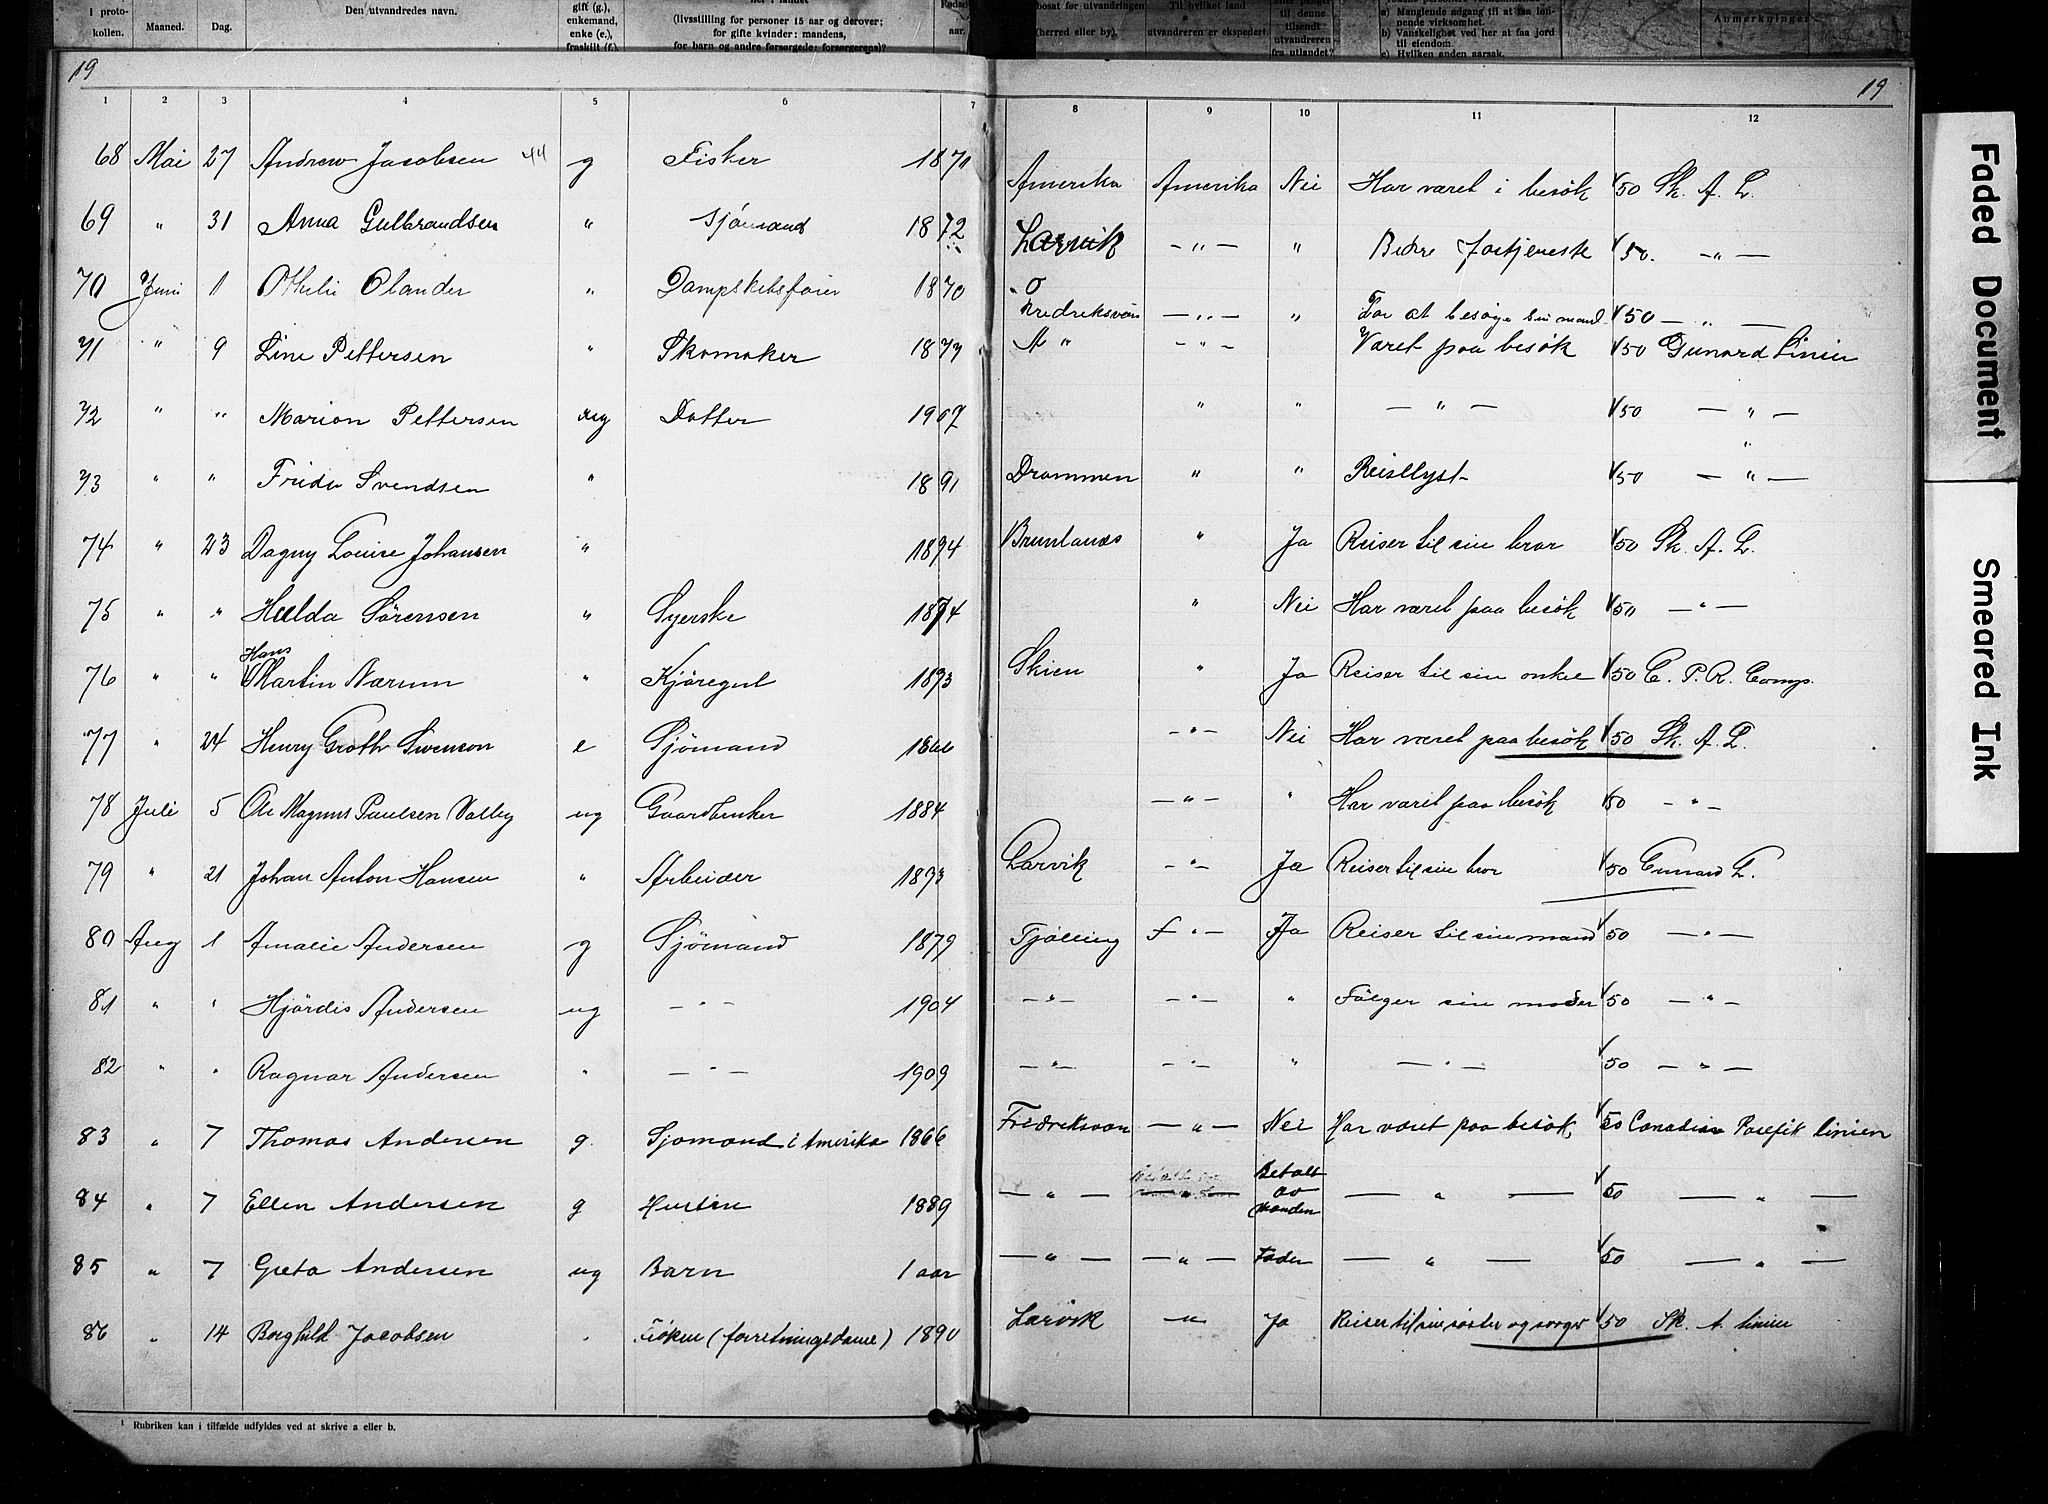 i proto-
kollen.
Maaned.
Dag.
Den utvandredes navn.
gift (g.),
enkemand,
enke (e.),
fraskilt (f.)
(livsstilling for personer 15 aar og derover;
for gifte kvinder: mandens,
for barn og andre forsørgede: forsørgerens)?
aar.
bosat før utvandringen
(herred eller by).
Til hvilket land
utvandreren er ekspedert.
til denne
tilsendt
utvandreren
fra utlandet?
a) Manglende adgang til at faa løn-
nende virksomhet.
b) Vanskelighet ved her at faa jord
til eiendom.
c) Hvilken anden aarsak.
Anmerkninger
19 19
1 2 3 4 5 6 7 8 9 10 11 12
68 Mai 27 Andrew Jacobsen 44 g Fisker 1870 Amerika Amerika Nei Har været i besök 50 Sk. A. L.
69 " 31 Anna Gulbrandsen " Sjömand 1872 Larvik — " — " Bedre fortjeneste 50. — " —
70 Juni 1 Othilie Olander " Dampskibsförer 1870 Fredriksvern — " — " For at besöge sin mand 50 — " —
71 " 9 Line Pettersen " Skomaker 1877 " — " — Været paa besök 50 Cunard Linien
72 " " Marion Pettersen ug Datter 1907 " " — " — 50 — " —
73 " " Frida Svendsen " 1891 Drammen " " Reiselyst 50 — " —
74 " 23 Dagny Louise Johansen " 1894 Brunlanes " Ja Reiser til sin bror 50 Sk. A. L.
75 " " Hulda Sörensen " Syerske 1874 " Nei Har været paa besök 50 — " —
76 " " Hans Martin Nærum " Kjöregut 1893 Skien " Ja Reiser til sin onkel 50 C. P. R. Comp.
77 " 24 Henry Groth Swenson e Sjömand 1866 — " — Nei Har været paa besök 50 Sk. A. L.
78 Juli 5 Ole Magnus Paulsen Valby ug Gaardbruker 1884 — " — " Har været paa besök 50 — " —
79 " 21 Johan Anton Hansen " Arbeider 1893 Larvik — " — Ja Reiser til sin bror 50 Cunard L.
80 Aug 1 Amalie Andersen g Sjömand 1879 Tjölling — " — Ja Reiser til sin mand 50 — " —
81 " " Hjördis Andersen ug — " — 1904 — " — — " — " Fölger sin moder 50 — " —
82 " " Ragnar Andersen " — " — 1909 — " — — " — " — " — 50 — " —
83 " 7 Thomas Andersen g. Sjömand i Amerika 1866 Fredriksværn — " — Nei Har været paa besök 50 Canadian Pasefik linien
84 " 7 Ellen Andersen g Hustru 1889 — " — — " — Betalt av Manden — " — 50 — " —
85 " 7 Greta Andersen ug Barn 1 aar — " — — " — Fader — " — 50 — " —
86 " 14 Borghild Jacobsen " Fröken (forretningsdame) 1890 Larvik — " — Ja Reiser til sin söster og svoger 50 Sk. A. linien
¹ Rubriken kan i tilfælde udfyldes ved at skrive a eller b.
Faded Document
Smeared Ink